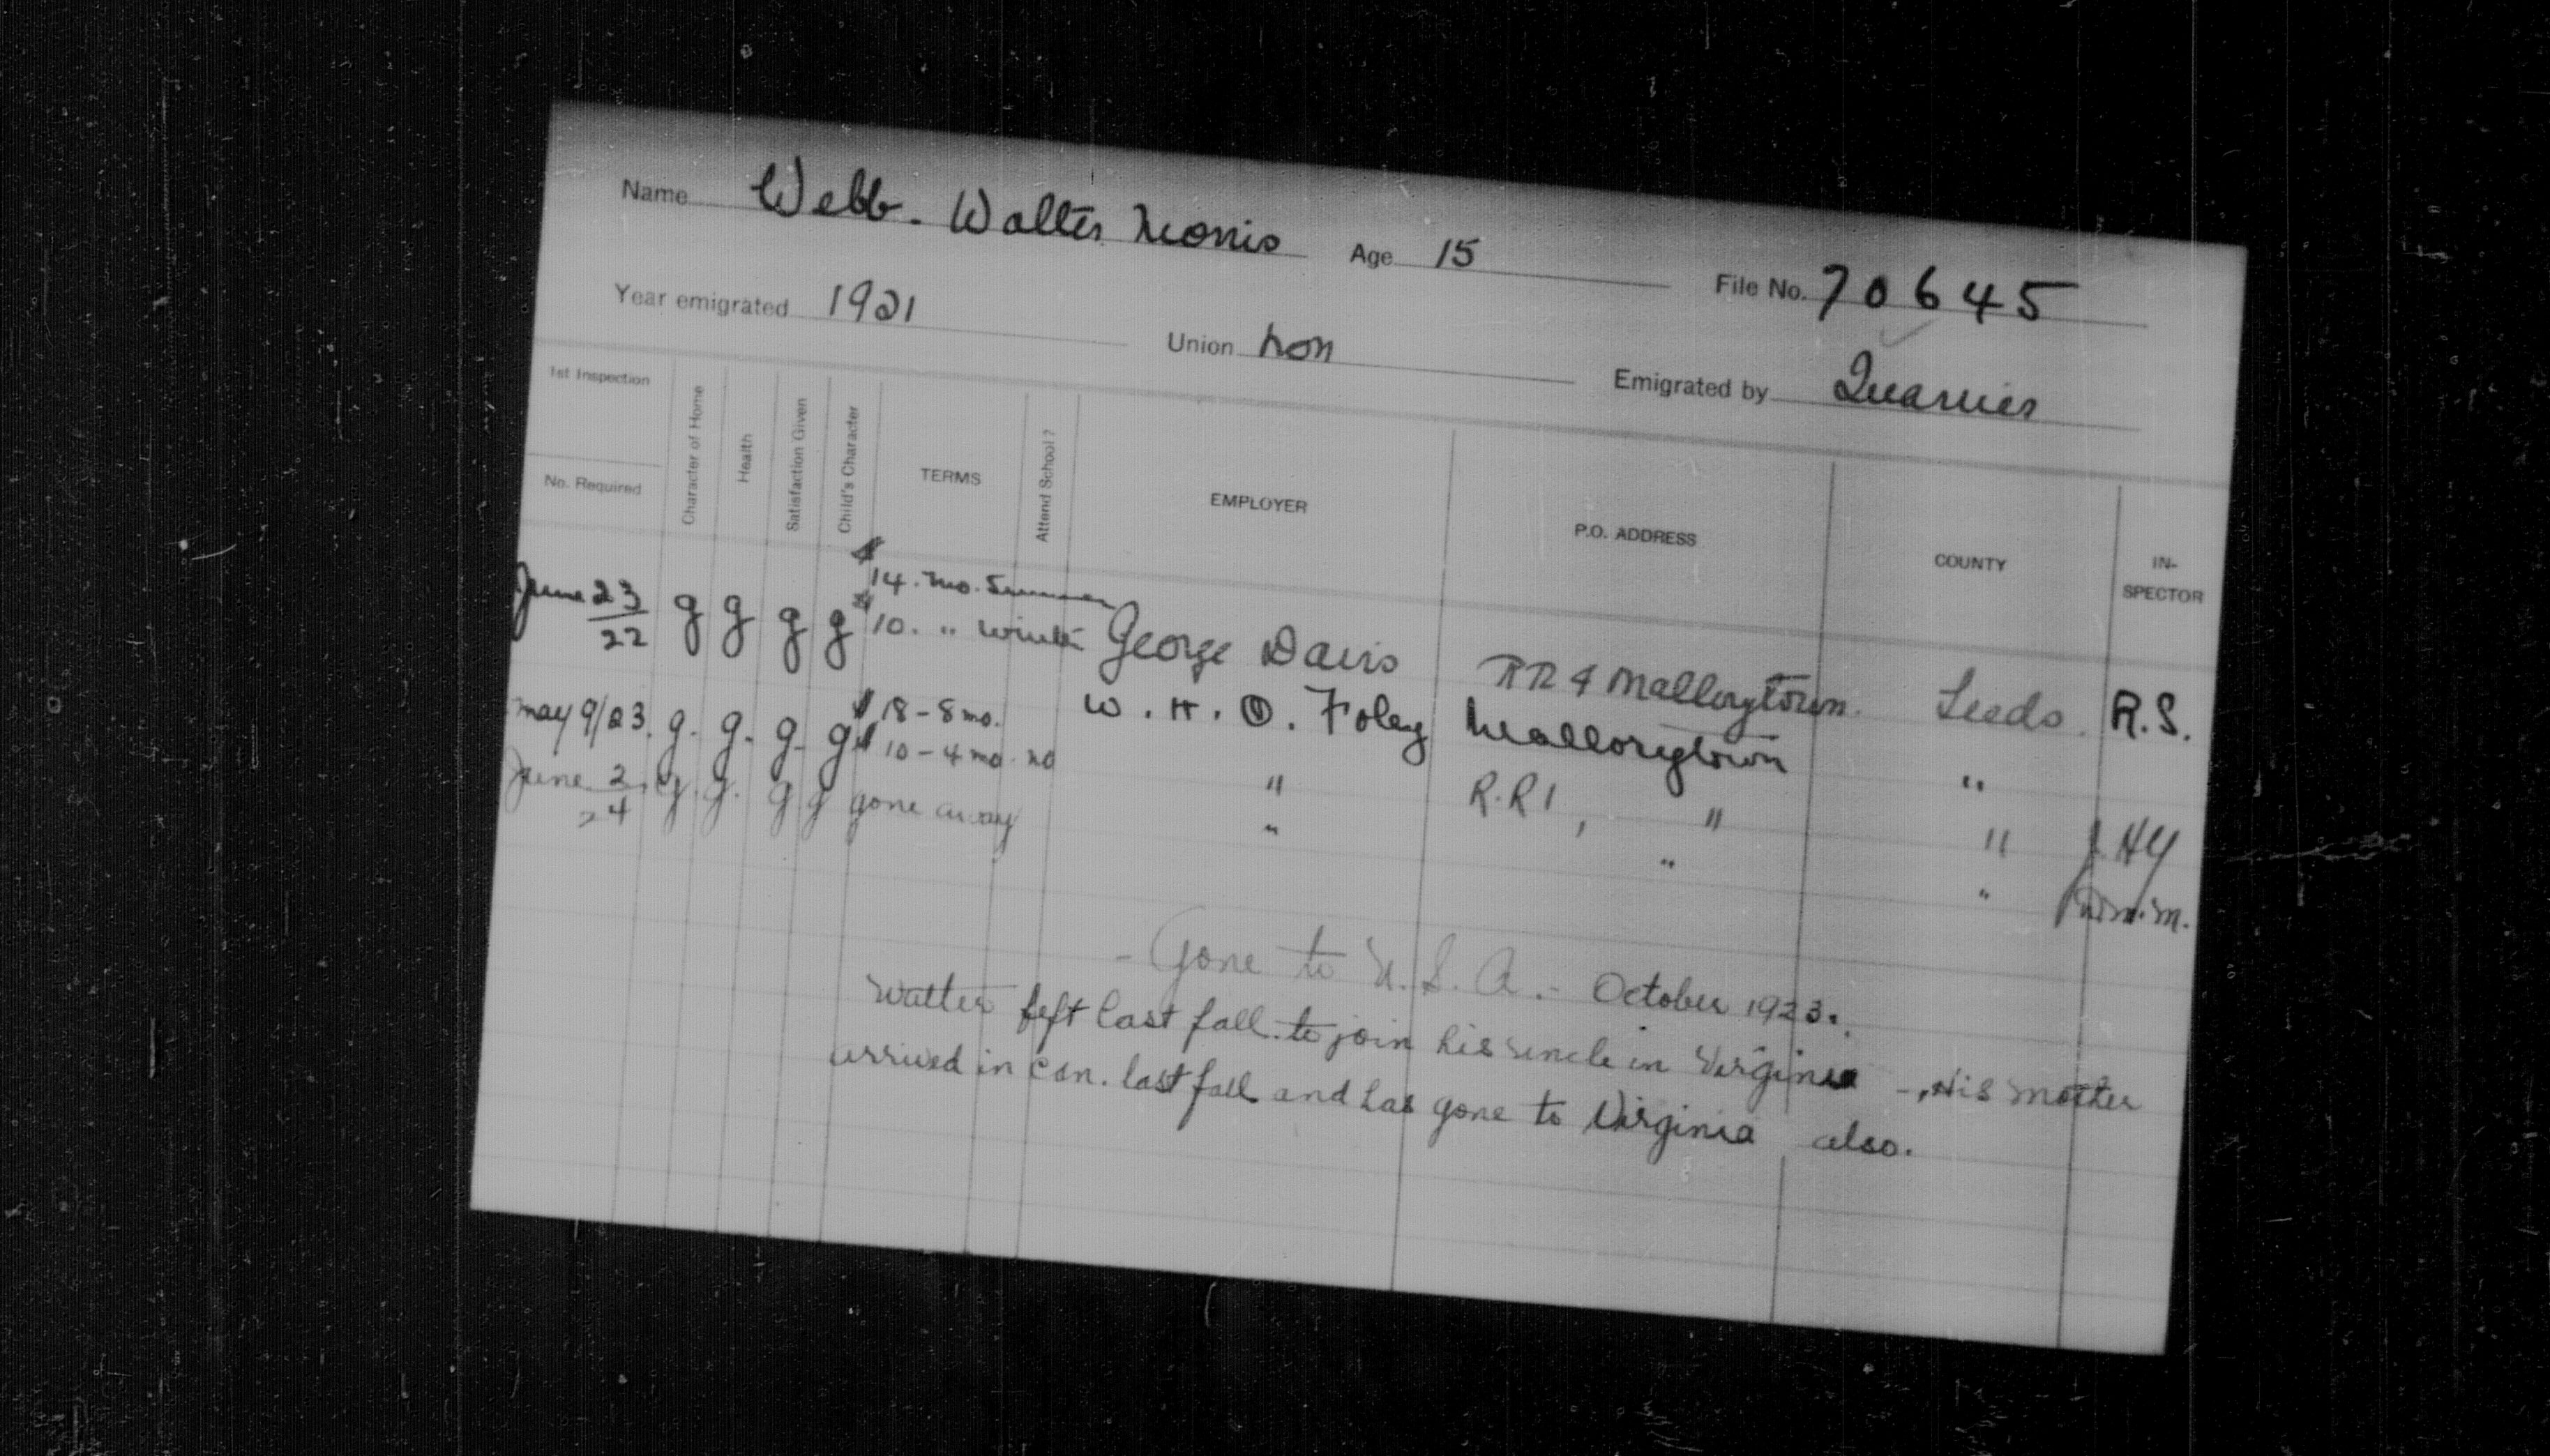 Name Webb. Walter Morris Age 15 File No. 70645
Year emigrated 1921 Union non Emigrated by Quarrier
1st Inspection
No. Required
Character of Home
Health
Satisfaction Given
Child's Character
TERMS
Attend School?
EMPLOYER
P.O. ADDRESS
COUNTY
IN-
SPECTOR
$14. mo. Summer
June 23/22 g g g g $10. " winter George Davis RR 4 Mallorytown. Leeds. R.S.
W. H. O. Foley Mallorytown "
may 9/23. g. g. g. g $18 - 8 mo.
$10 - 4 mo. no " R.R 1, " " J. H
June 2/24 g. g. g g gone away " " " m.m.
- Gone to U.S.A. - October 1923.
Walter left last fall to join his uncle in Virginia - His mother
arrived in Can. last fall and has gone to Virginia also.